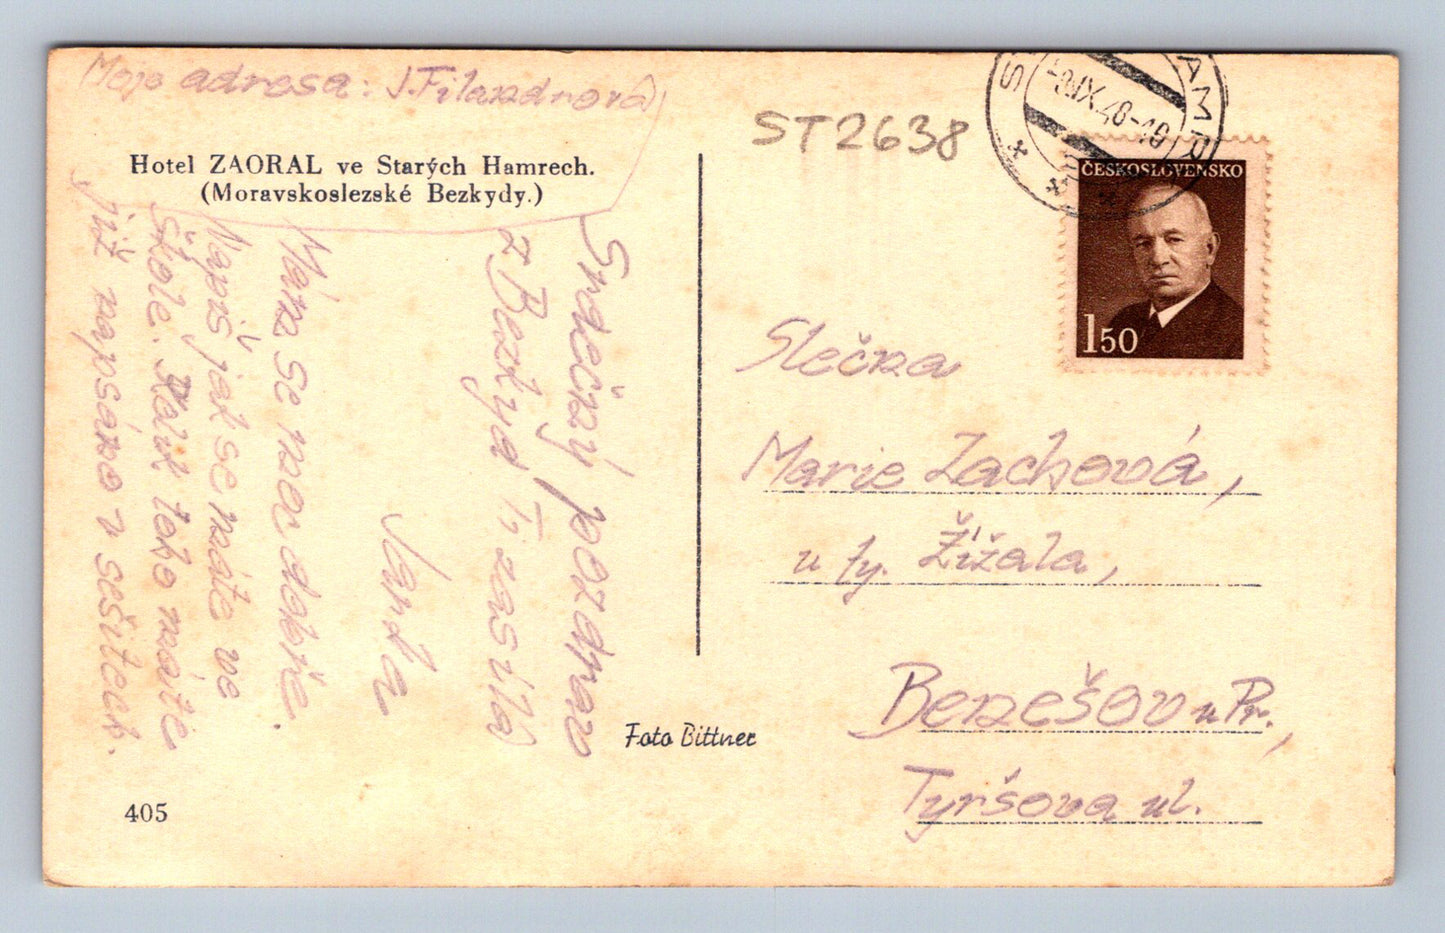 Moje adresa: J. Filandrová
ST2638
Hotel ZAORAL ve Starých Hamrech.
(Moravskoslezské Bezkydy.)
Srdečný pozdrav
z Bezkyd Ti zasílá
Jarka
Mám se moc dobře.
Napiš jak se máte ve
škole. Kolik toho máte
již napsáno v sešitech.
ČESKOSLOVENSKO
1 50
Slečna
Marie Zachová,
u fy. Žížala,
Benešov u Pr.,
Tyršova ul.
Foto Bittner
405